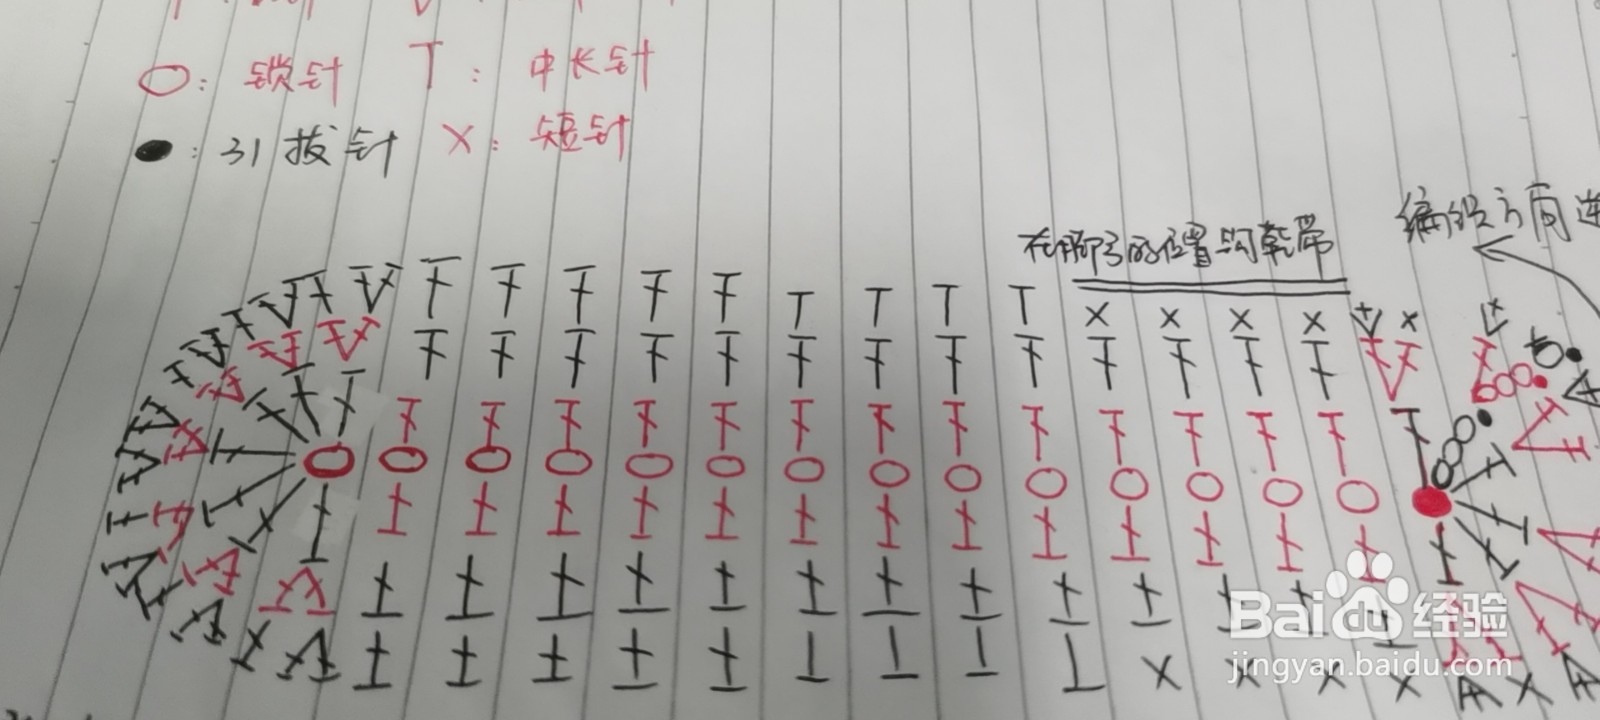 ○: 锁针 T: 中长针
●: 引拔针 X: 短针
在脚的位置勾鞋带
编织方向
Baidu 经验
jingyan.baidu.com